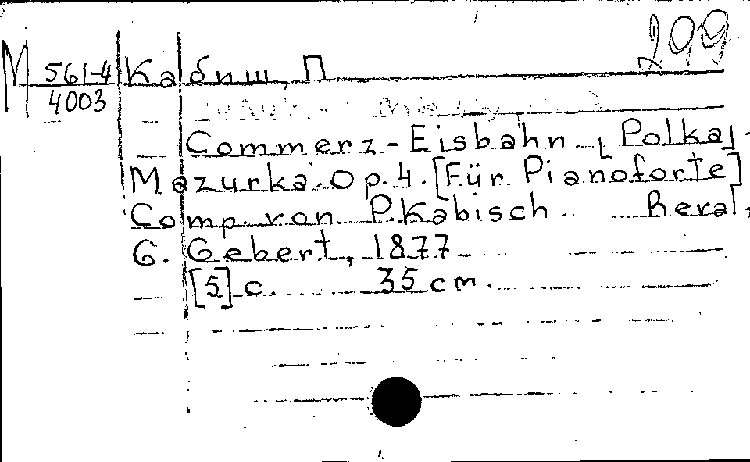 299
М 561-4
4003
Кабиш, П
Commerz-Eisbahn. [Polka]-
Mazurka. Op. 4. [Für Pianoforte]
Comp. von P. Kabisch. Reval,
G. Gebert, 1877
[5] с. 35 cm.